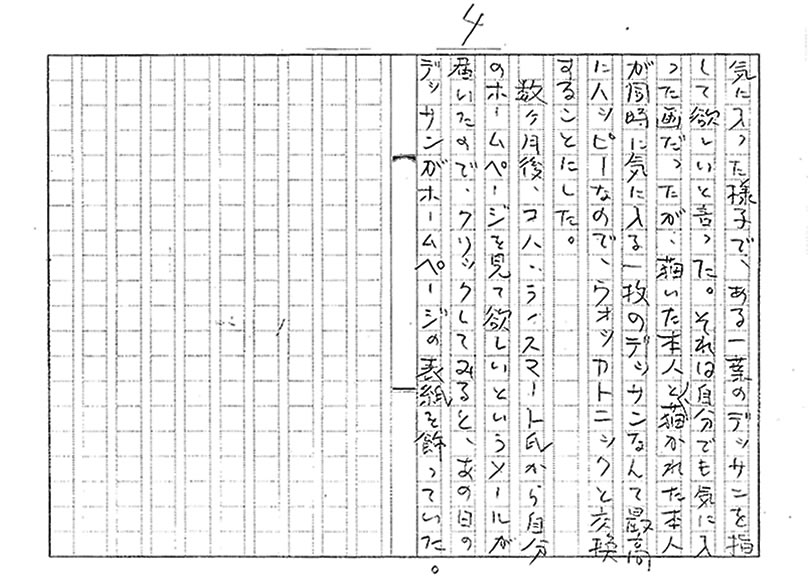 4
気に入った様子で、ある一葉のデッサンを指
して欲しいと言った。それは自分でも気に入
った画だったが、描いた本人と描かれた本人
が同時に気に入る一枚のデッサンなんて最高
にハッピーなので、ウオッカトニックと交換
することにした。
数ヶ月後、コハ、ライスマート氏から自分
のホームページを見て欲しいというメールが
届いたので、クリックしてみると、あの日の
デッサンがホームページの表紙を飾っていた。